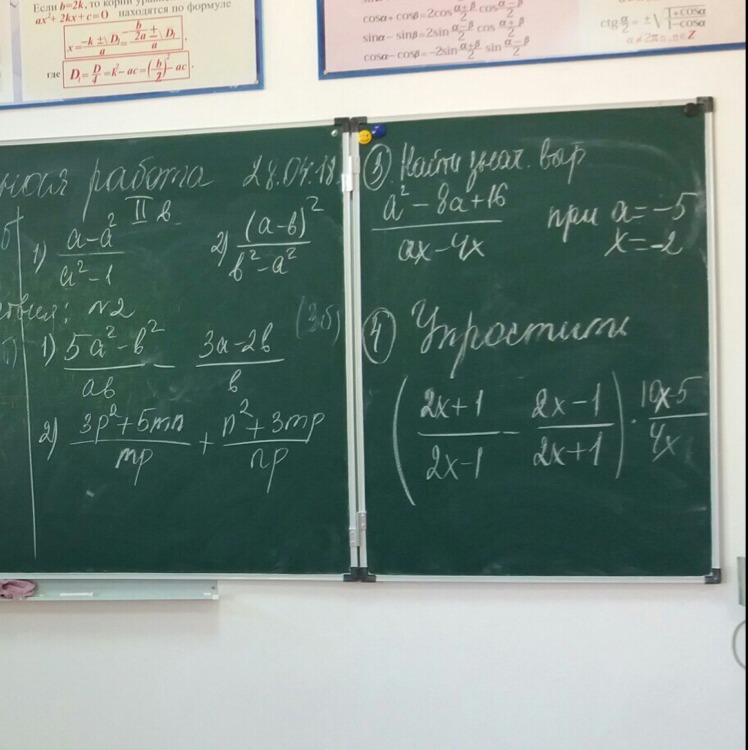 Если b=2k, то корни
ax²+2kx+c=0 находятся по формуле
x = (-k ± √D₁)/a = (-b/2 ± √D₁)/a.
где D₁ = D/4 = k²-ac = (b/2)²-ac.
cosα+cosβ=2cos (α+β)/2 cos (α-β)/2
sinα-sinβ=2sin (α-β)/2 cos (α+β)/2
cosα-cosβ=-2sin (α+β)/2 sin (α-β)/2
ctg α/2 = ±√((1+cosα)/(1-cosα))
работа 28.04.18.
II в
1) (a-a²)/(a²-1) 2) (a-b)²/(b²-a²)
№2 (3б)
1) (5a²-b²)/(ab) - (3a-2b)/b
2) (3p²+5mn)/(mp) + (n²+3mp)/(np)
③ Найти знач. выр
(a²-8a+16)/(ax-4x) при a=-5
x=-2
④ Упростить
((2x+1)/(2x-1) - (2x-1)/(2x+1)) · (10x-5)/(4x)